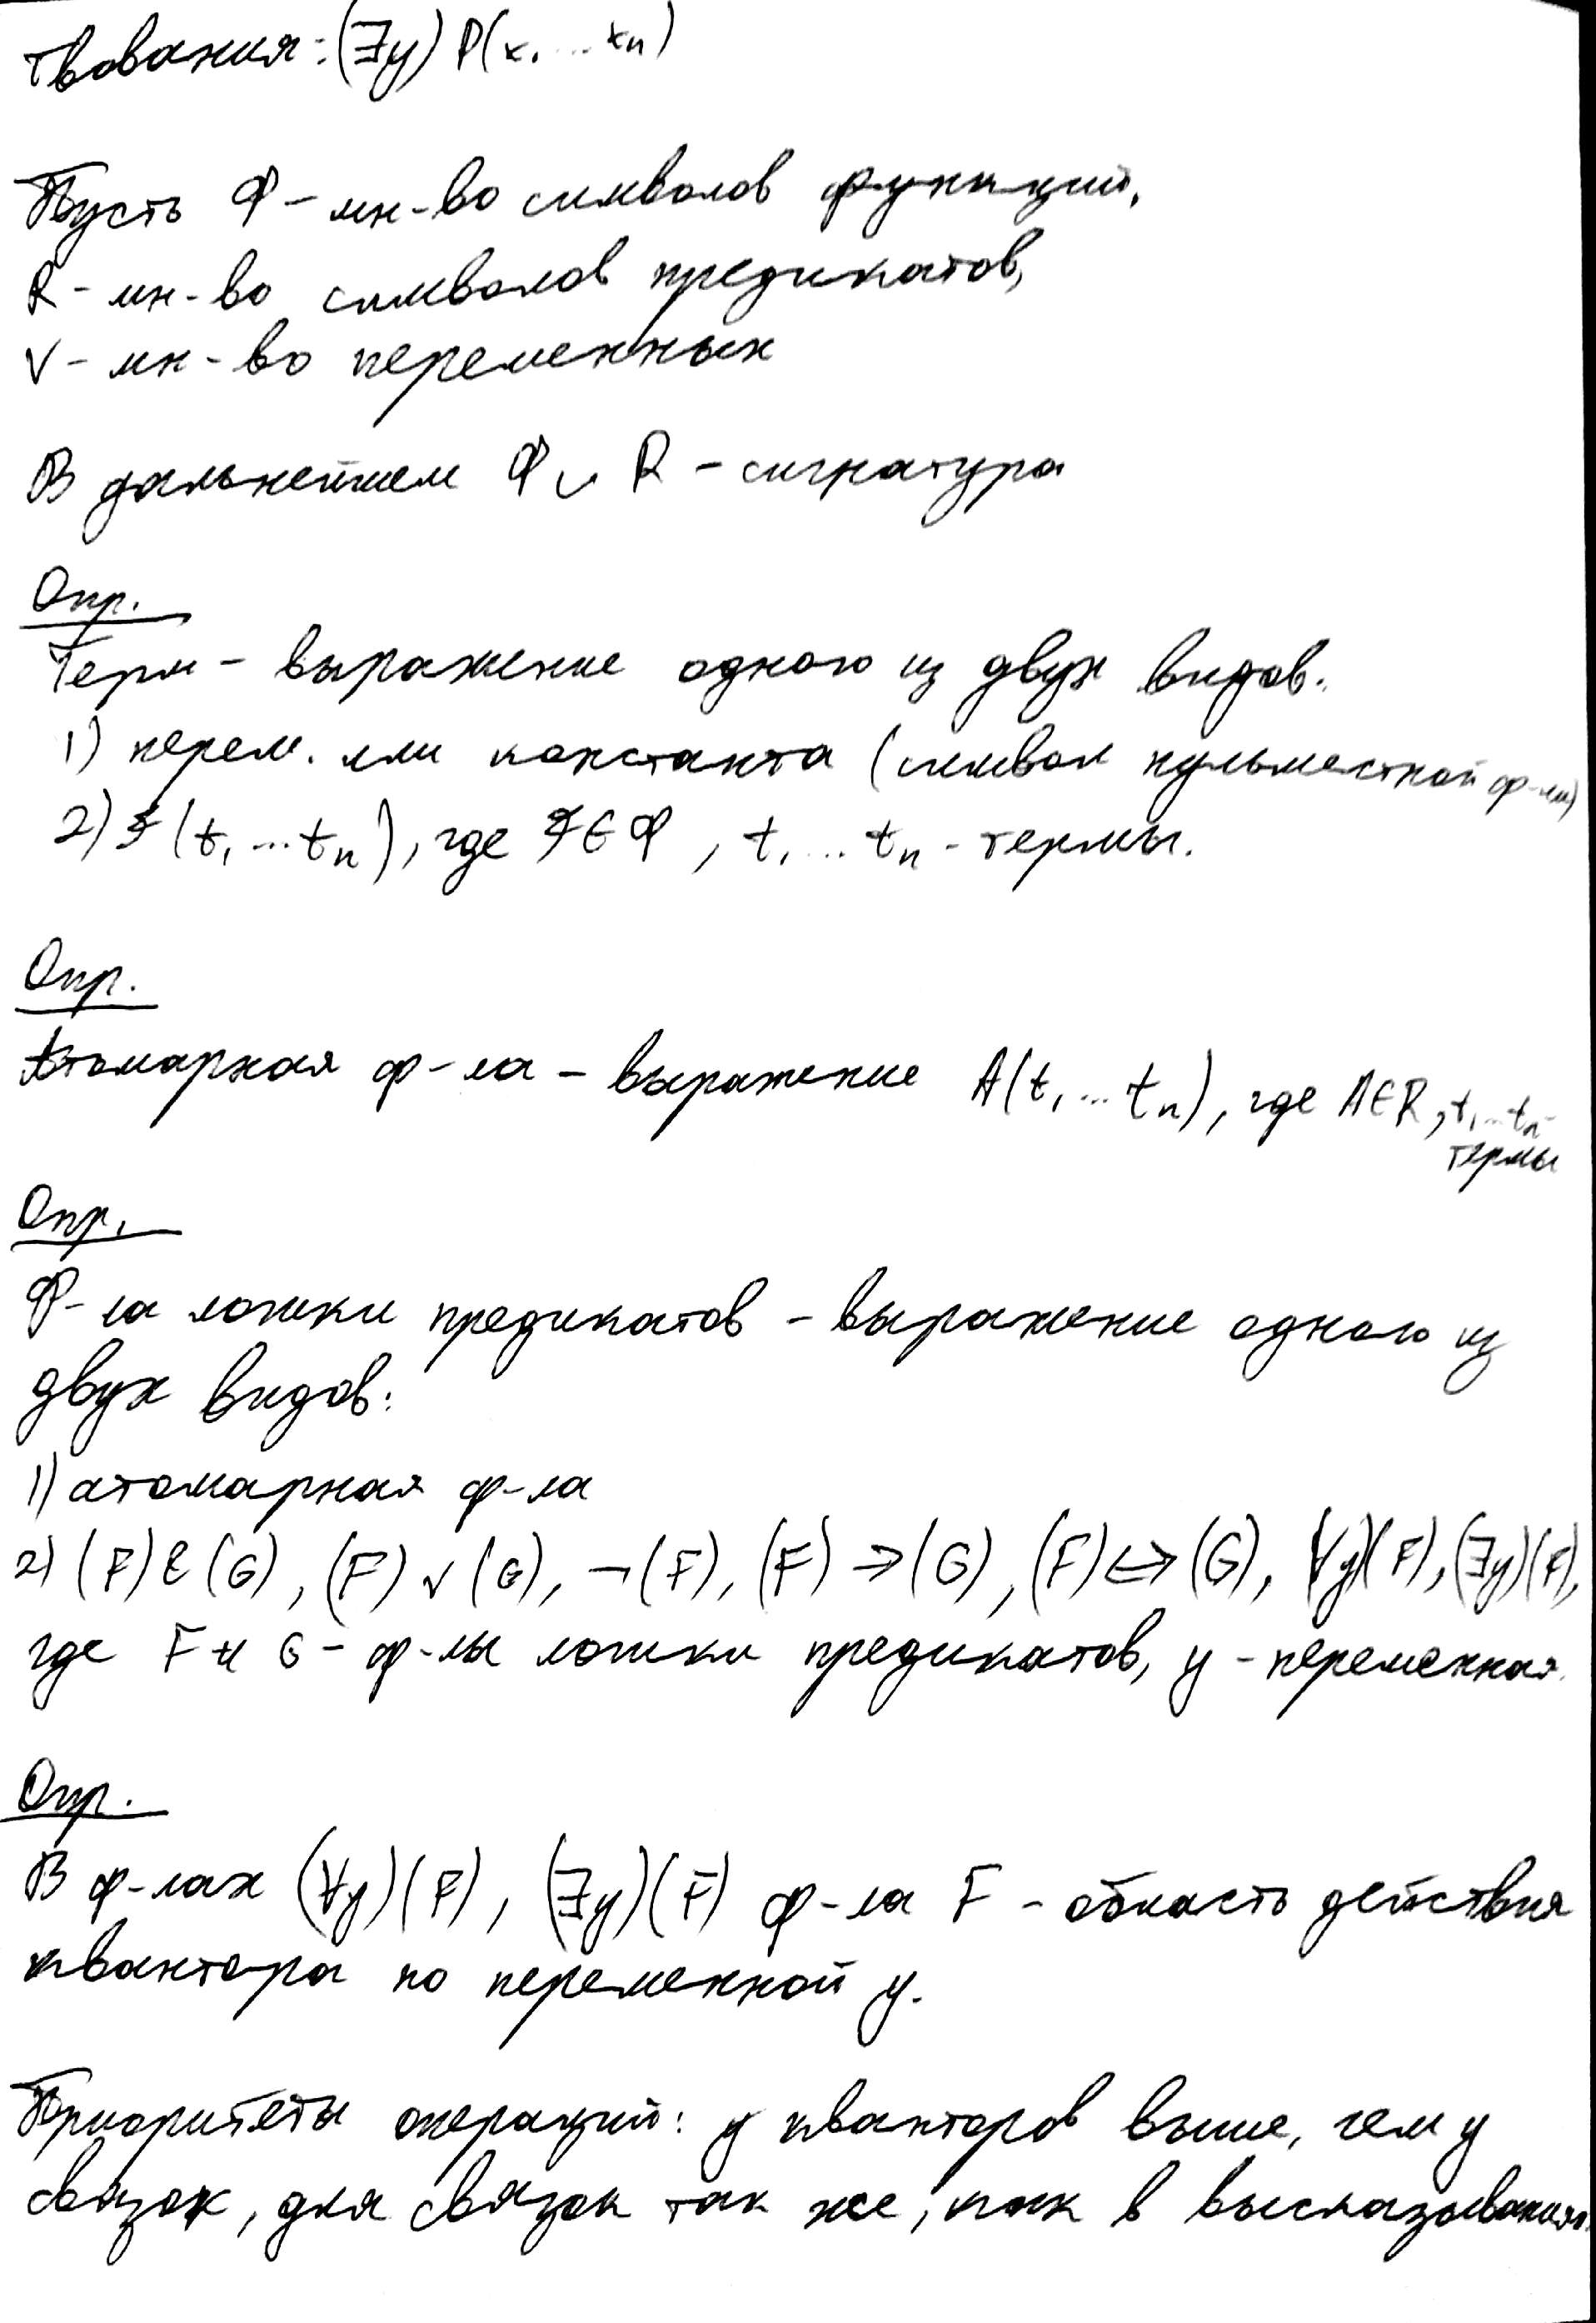 твования: (∃y) P(x₁ ... xₙ)
Пусть Φ - мн-во символов функций,
R - мн-во символов предикатов,
V - мн-во переменных
В дальнейшем Φ ∪ R - сигнатура
Опр.
Терм - выражение одного из двух видов:
1) перем. или константа (символ нульместной ф-ии)
2) F(t₁ ... tₙ), где F ∈ Φ, t₁ ... tₙ - термы.
Опр.
Атомарная ф-ла - выражение A(t₁ ... tₙ), где A ∈ R, t₁ ... tₙ -
термы
Опр.
Ф-ла логики предикатов - выражение одного из
двух видов:
1) атомарная ф-ла
2) (F) & (G), (F) ∨ (G), ¬(F), (F) ⇒ (G), (F) ⇔ (G), (∀y)(F), (∃y)(F),
где F и G - ф-лы логики предикатов, y - переменная.
Опр.
В ф-лах (∀y)(F), (∃y)(F) ф-ла F - область действия
квантора по переменной y.
Приоритеты операций: у кванторов выше, чем у
связок, для связок так же, как в высказываниях.